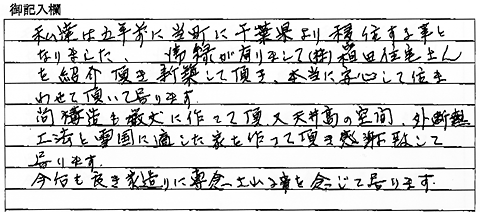 御記入欄
私達は五年前に当町に千葉県より移住する事と
なりました。御縁が有りまして(株)稲田住宅さん
を紹介頂き新築して頂き、本当に安心して住ま
わせて頂いて居ります。
尚構造も頑丈に作って頂き天井高の空間、外断熱
工法と雪国に適した家を作って頂き感謝致して
居ります。
今后も良き家造りに専念される事を念じて居ります。